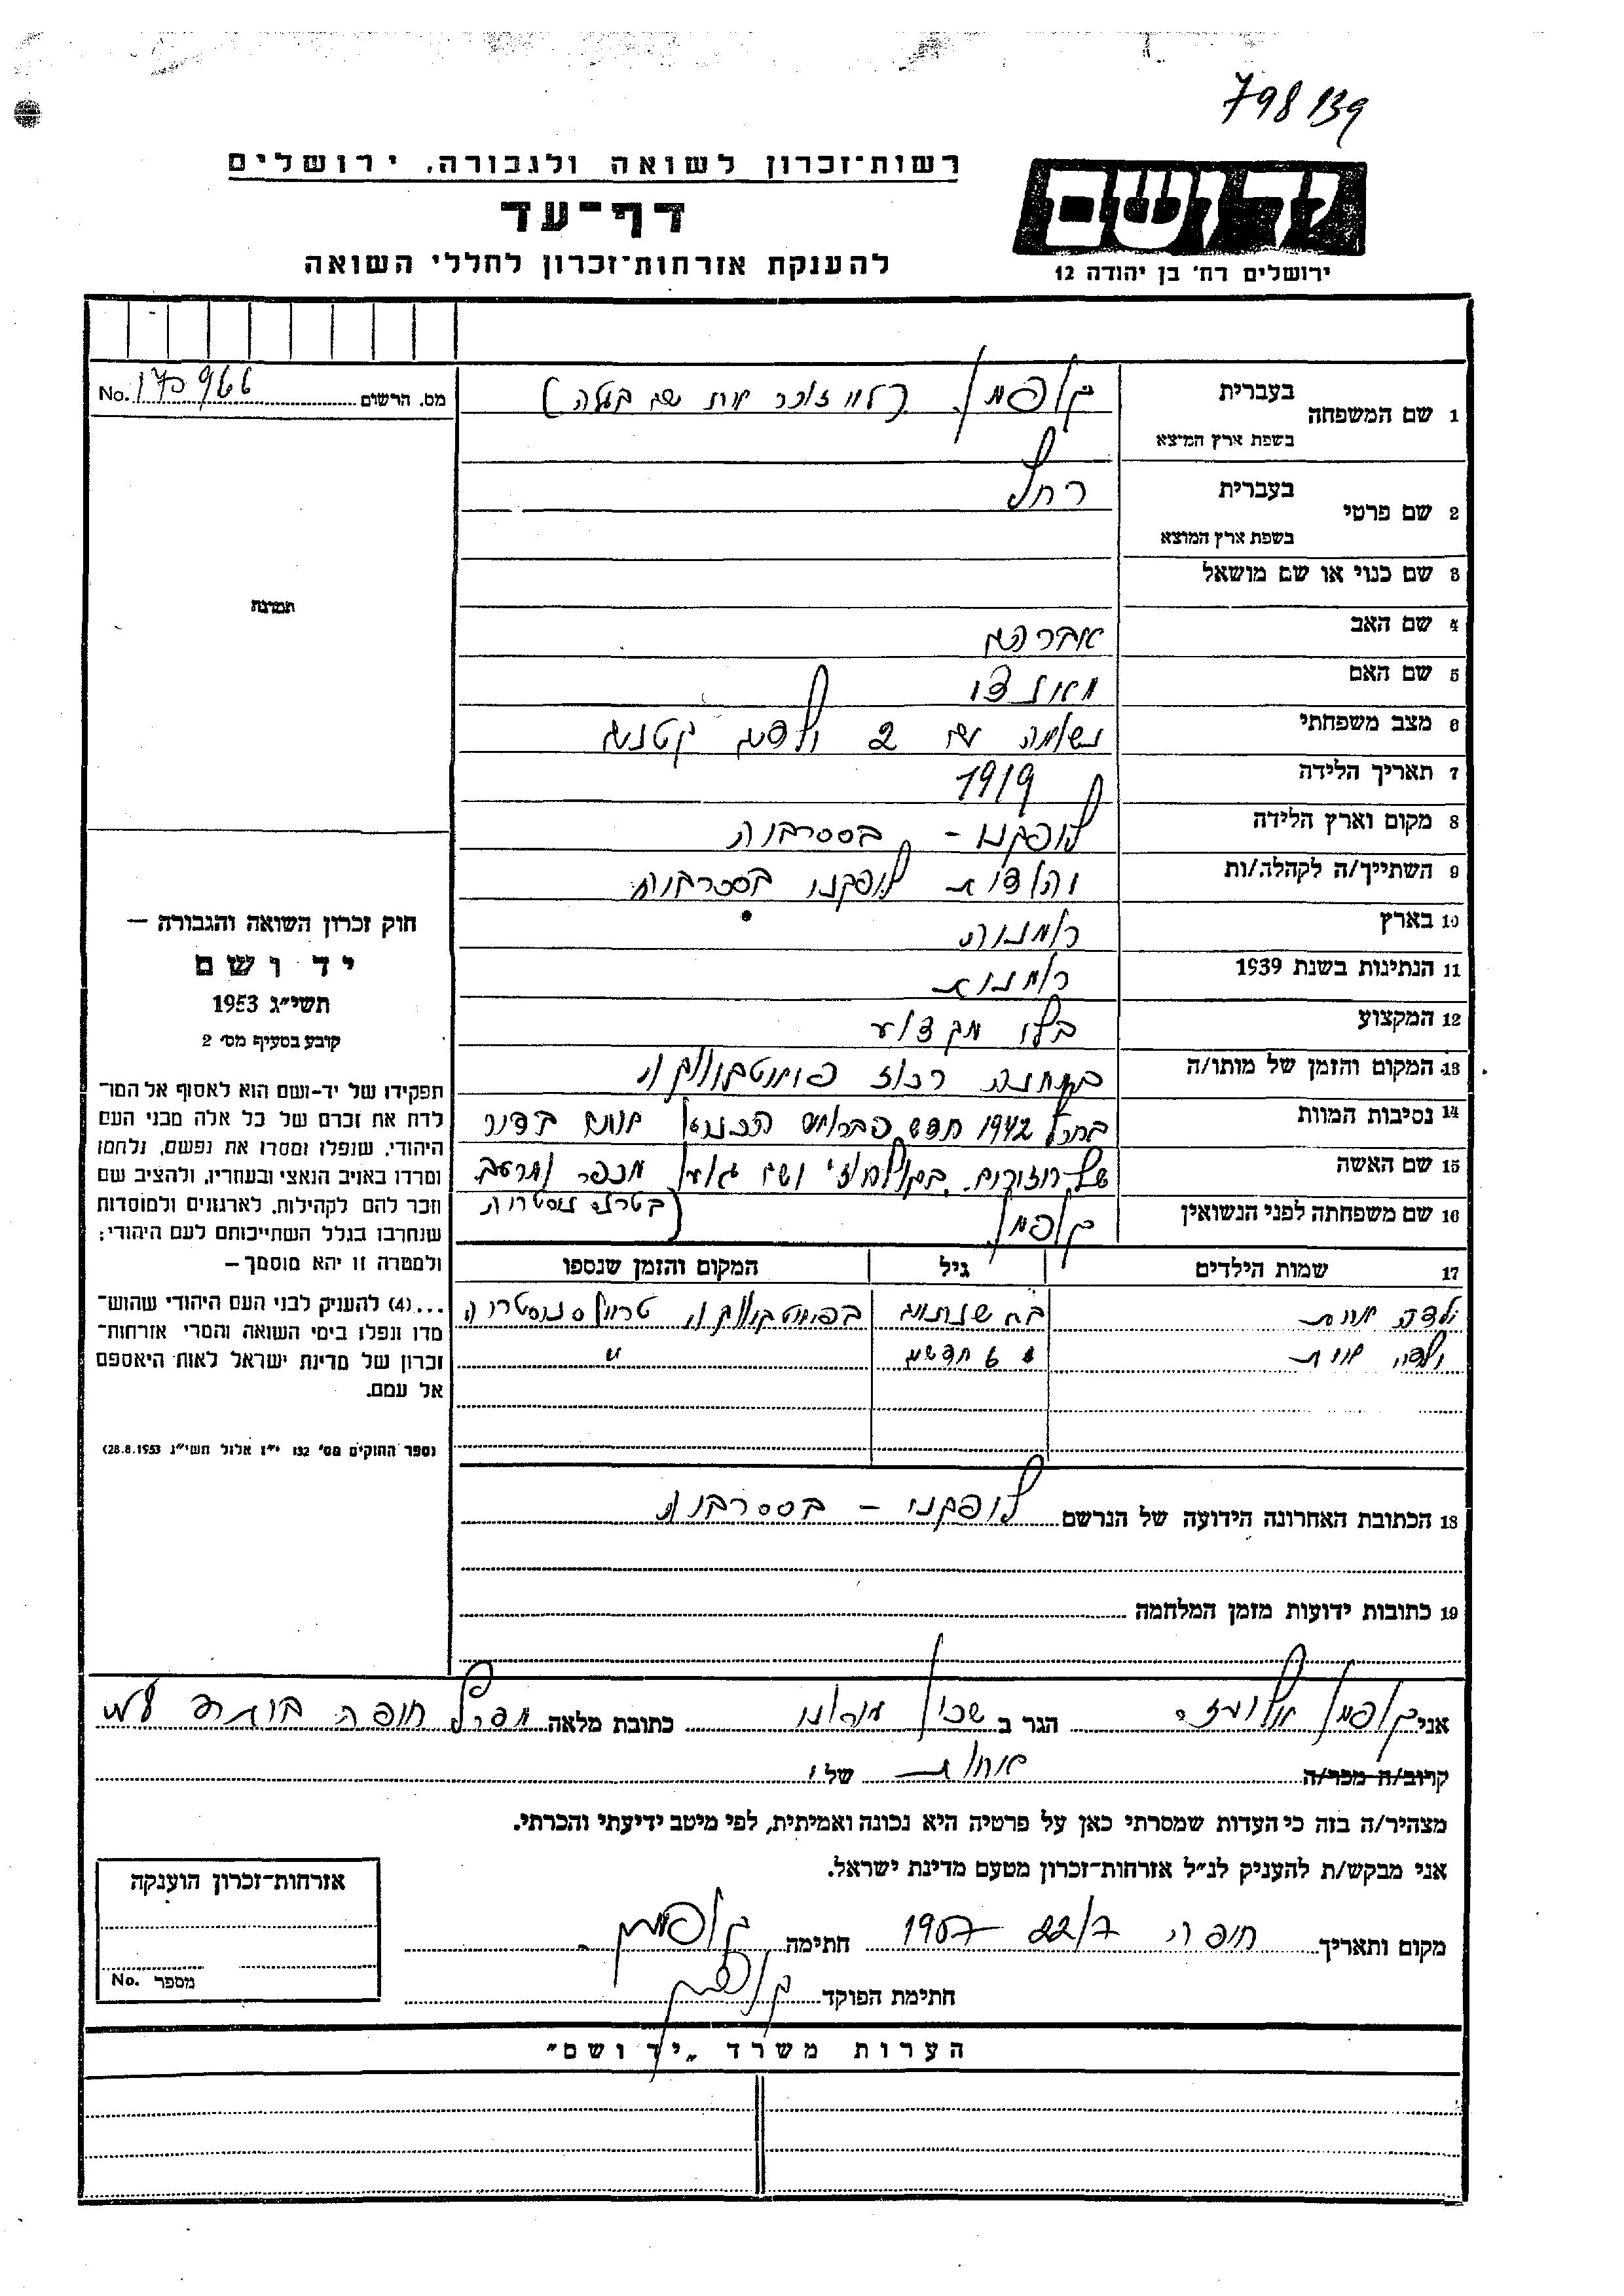 798139
רשות-זכרון לשואה ולגבורה, ירושלים
דף-עד
להענקת אזרחות-זכרון לחללי השואה
יד ושם
ירושלים רח' בן יהודה 12
מס. הרשום No. 170966
בעברית
1 שם המשפחה
בשפת ארץ המוצא
קופמן (לא זוכר את שם בעלה)
בעברית
2 שם פרטי
בשפת ארץ המוצא
רחל
3 שם כנוי או שם מושאל
4 שם האב אברהם
5 שם האם
6 מצב משפחתי נשואה עם 2 ילדים קטנים
7 תאריך הלידה 1919
8 מקום וארץ הלידה ליפקני - בסרביה
9 השתייך/ה לקהלה/ות יהודית ליפקני בסרביה
10 בארץ רומניה
11 הנתינות בשנת 1939 רומנית
12 המקצוע בלי מקצוע
13 המקום והזמן של מותו/ה במחנה רכוז
14 נסיבות המוות בחרף 1942 חדש
15 שם האשה של
16 שם משפחתה לפני הנשואין קופמן
17 שמות הילדים גיל המקום והזמן שנספו
ילדה אחת בת שנתים
ילדה אחת " 6 חדשים "
18 הכתובת האחרונה הידועה של הנרשם ליפקני - בסרביה
19 כתובות ידועות מזמן המלחמה
תמונה
חוק זכרון השואה והגבורה –
יד ושם
תשי"ג 1953
קובע בסעיף מס' 2
תפקידו של יד-ושם הוא לאסוף אל המו-
לדת את זכרם של כל אלה מבני העם
היהודי, שנפלו ומסרו את נפשם, נלחמו
ומרדו באויב הנאצי ובעוזריו, ולהציב שם
וזכר להם לקהילות, לארגונים ולמוסדות
שנחרבו בגלל השתייכותם לעם היהודי;
ולמטרה זו יהא מוסמך –
...(4) להעניק לבני העם היהודי שהוש-
מדו ונפלו בימי השואה והמרי אזרחות-
זכרון של מדינת ישראל לאות היאספם
אל עמם.
(ספר החוקים מס' 132 י"ז אלול תשי"ג 28.8.1953)
אני קופמן הגר ב שכון כתובת מלאה חיפה
קרוב/ה מכר/ה אחות של י
מצהיר/ה בזה כי העדות שמסרתי כאן על פרטיה היא נכונה ואמיתית, לפי מיטב ידיעתי והכרתי.
אני מבקש/ת להעניק לנ"ל אזרחות-זכרון מטעם מדינת ישראל.
מקום ותאריך חיפה 22/7 1957 חתימה קופמן
חתימת הפוקד קופמן
אזרחות-זכרון הוענקה
מספר No.
הערות משרד "יד ושם"